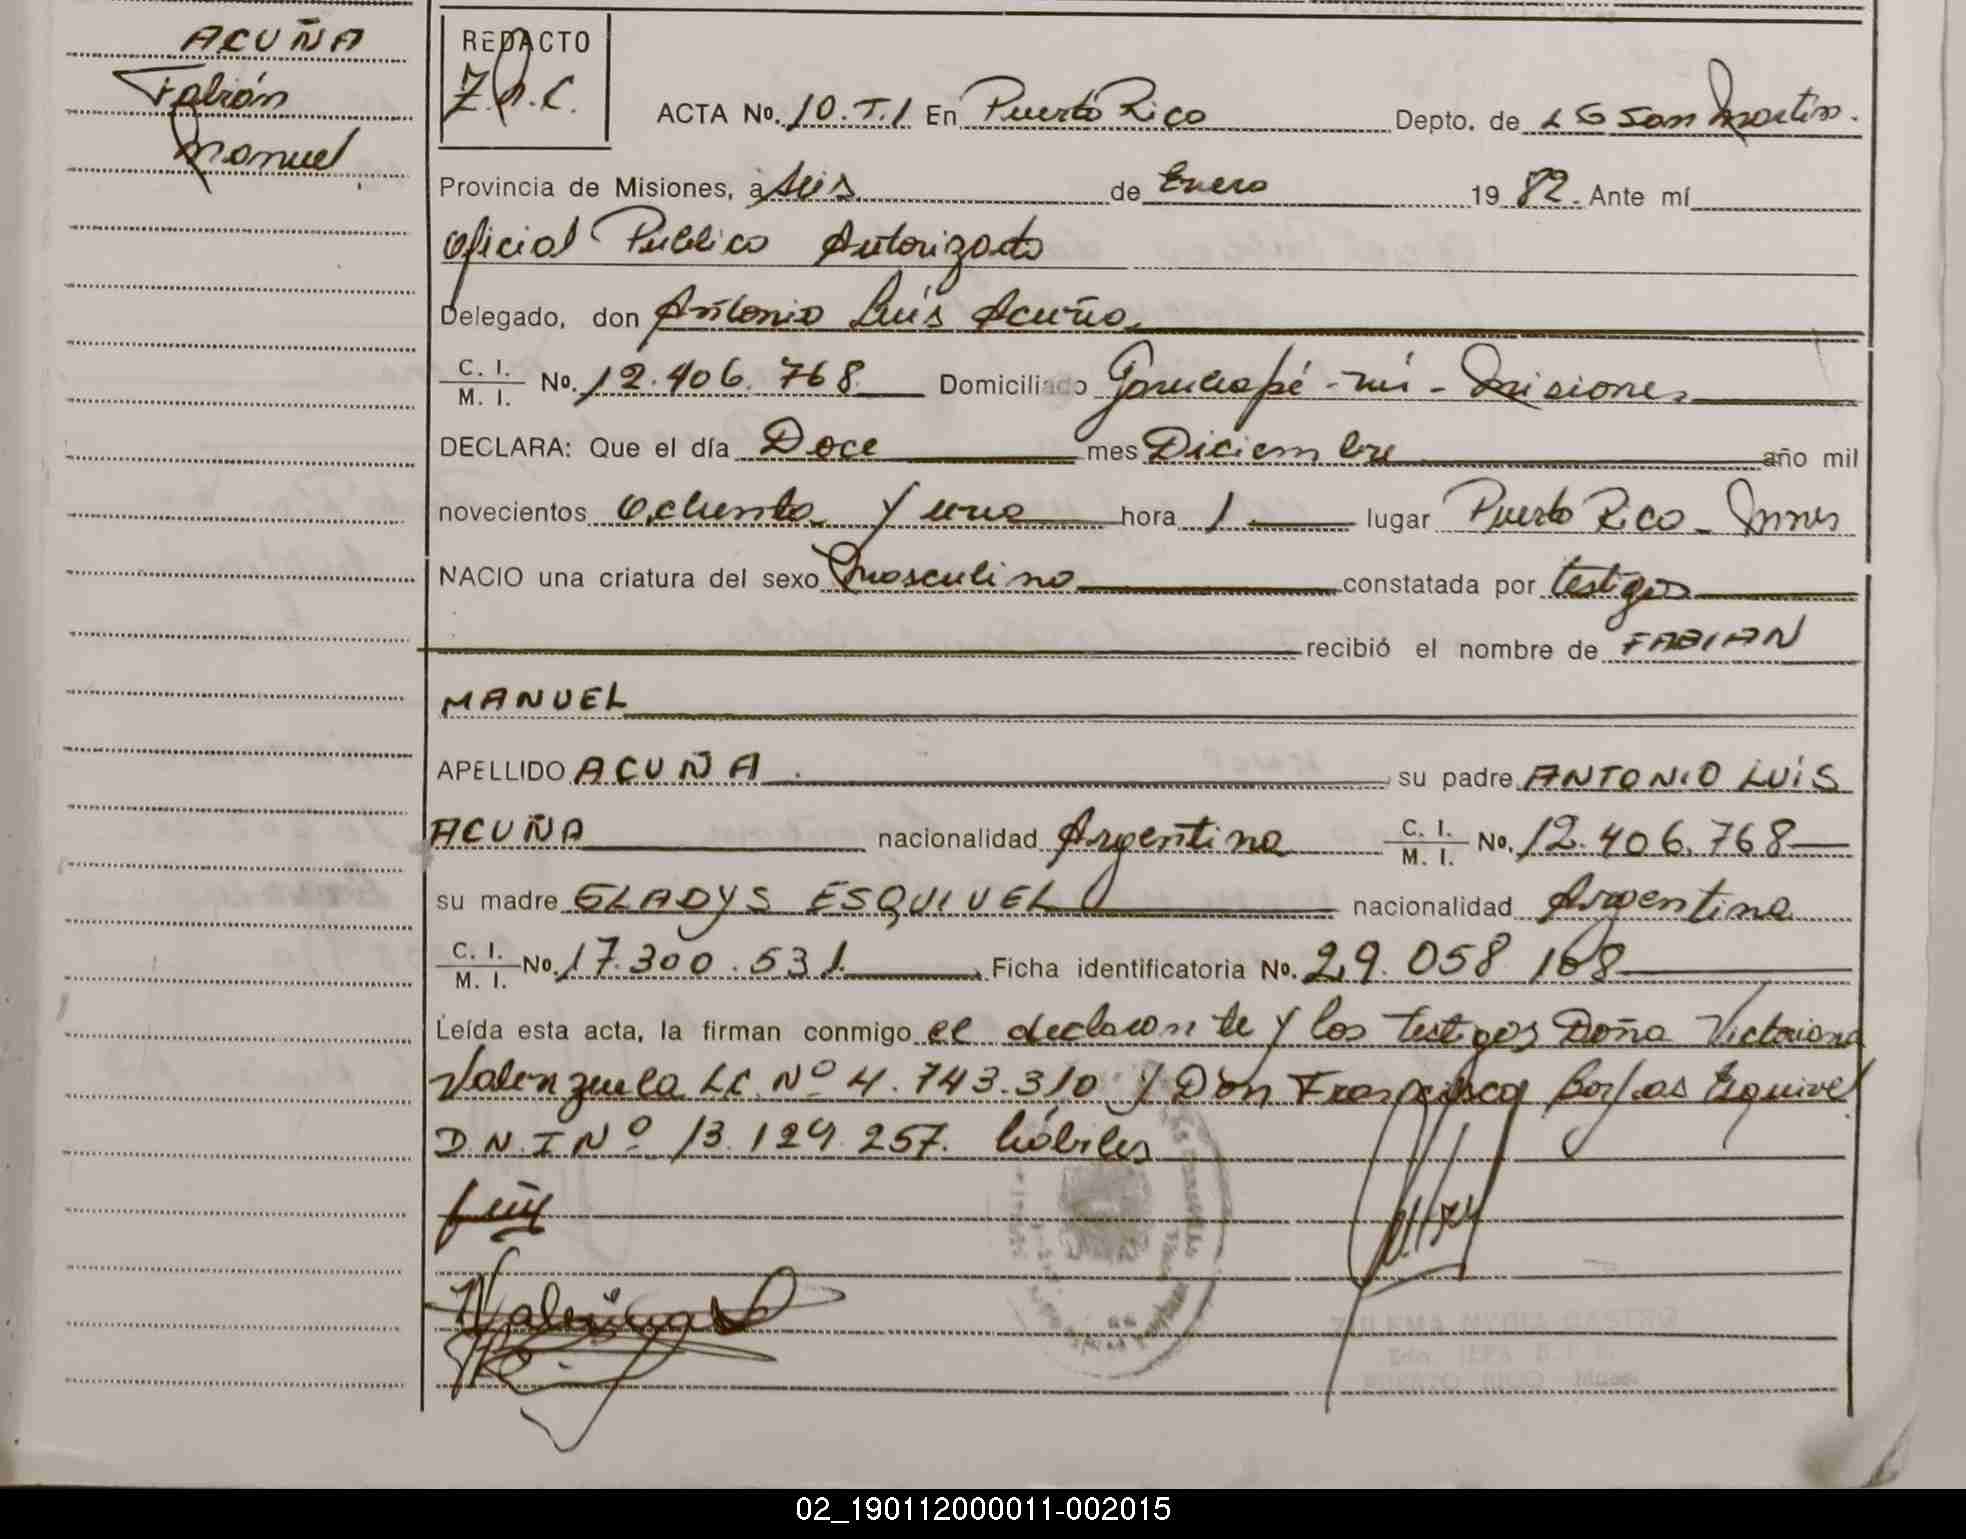 ACUÑA
Fabián
Manuel
REDACTO
Z.N.C.
ACTA No. 10.T.1 En Puerto Rico Depto. de LG San Martin.
Provincia de Misiones, a seis de Enero 1982. Ante mí
Oficial Publico Autorizado
Delegado, don Antonio Luis Acuña
C. I. / M. I. No. 12.406.768 Domiciliado Garuhapé-mí - Misiones
DECLARA: Que el día Doce mes Diciembre año mil
novecientos Ochenta y uno hora 1 lugar Puerto Rico - Mnes
NACIO una criatura del sexo Masculino constatada por testigos
recibió el nombre de FABIAN
MANUEL
APELLIDO ACUÑA su padre ANTONIO LUIS
ACUÑA nacionalidad Argentina C. I. / M. I. No. 12.406.768
su madre GLADYS ESQUIVEL nacionalidad Argentina
C. I. / M. I. No. 17.300.531 Ficha identificatoria No. 29.058.168
Leída esta acta, la firman conmigo el declarante y los testigos Doña Victoriana
Valenzuela LC. Nº 4.743.310 y Don Francisco Esquivel
D.N.I Nº 13.129.257. hábiles
PUERTO RICO
02_190112000011-002015